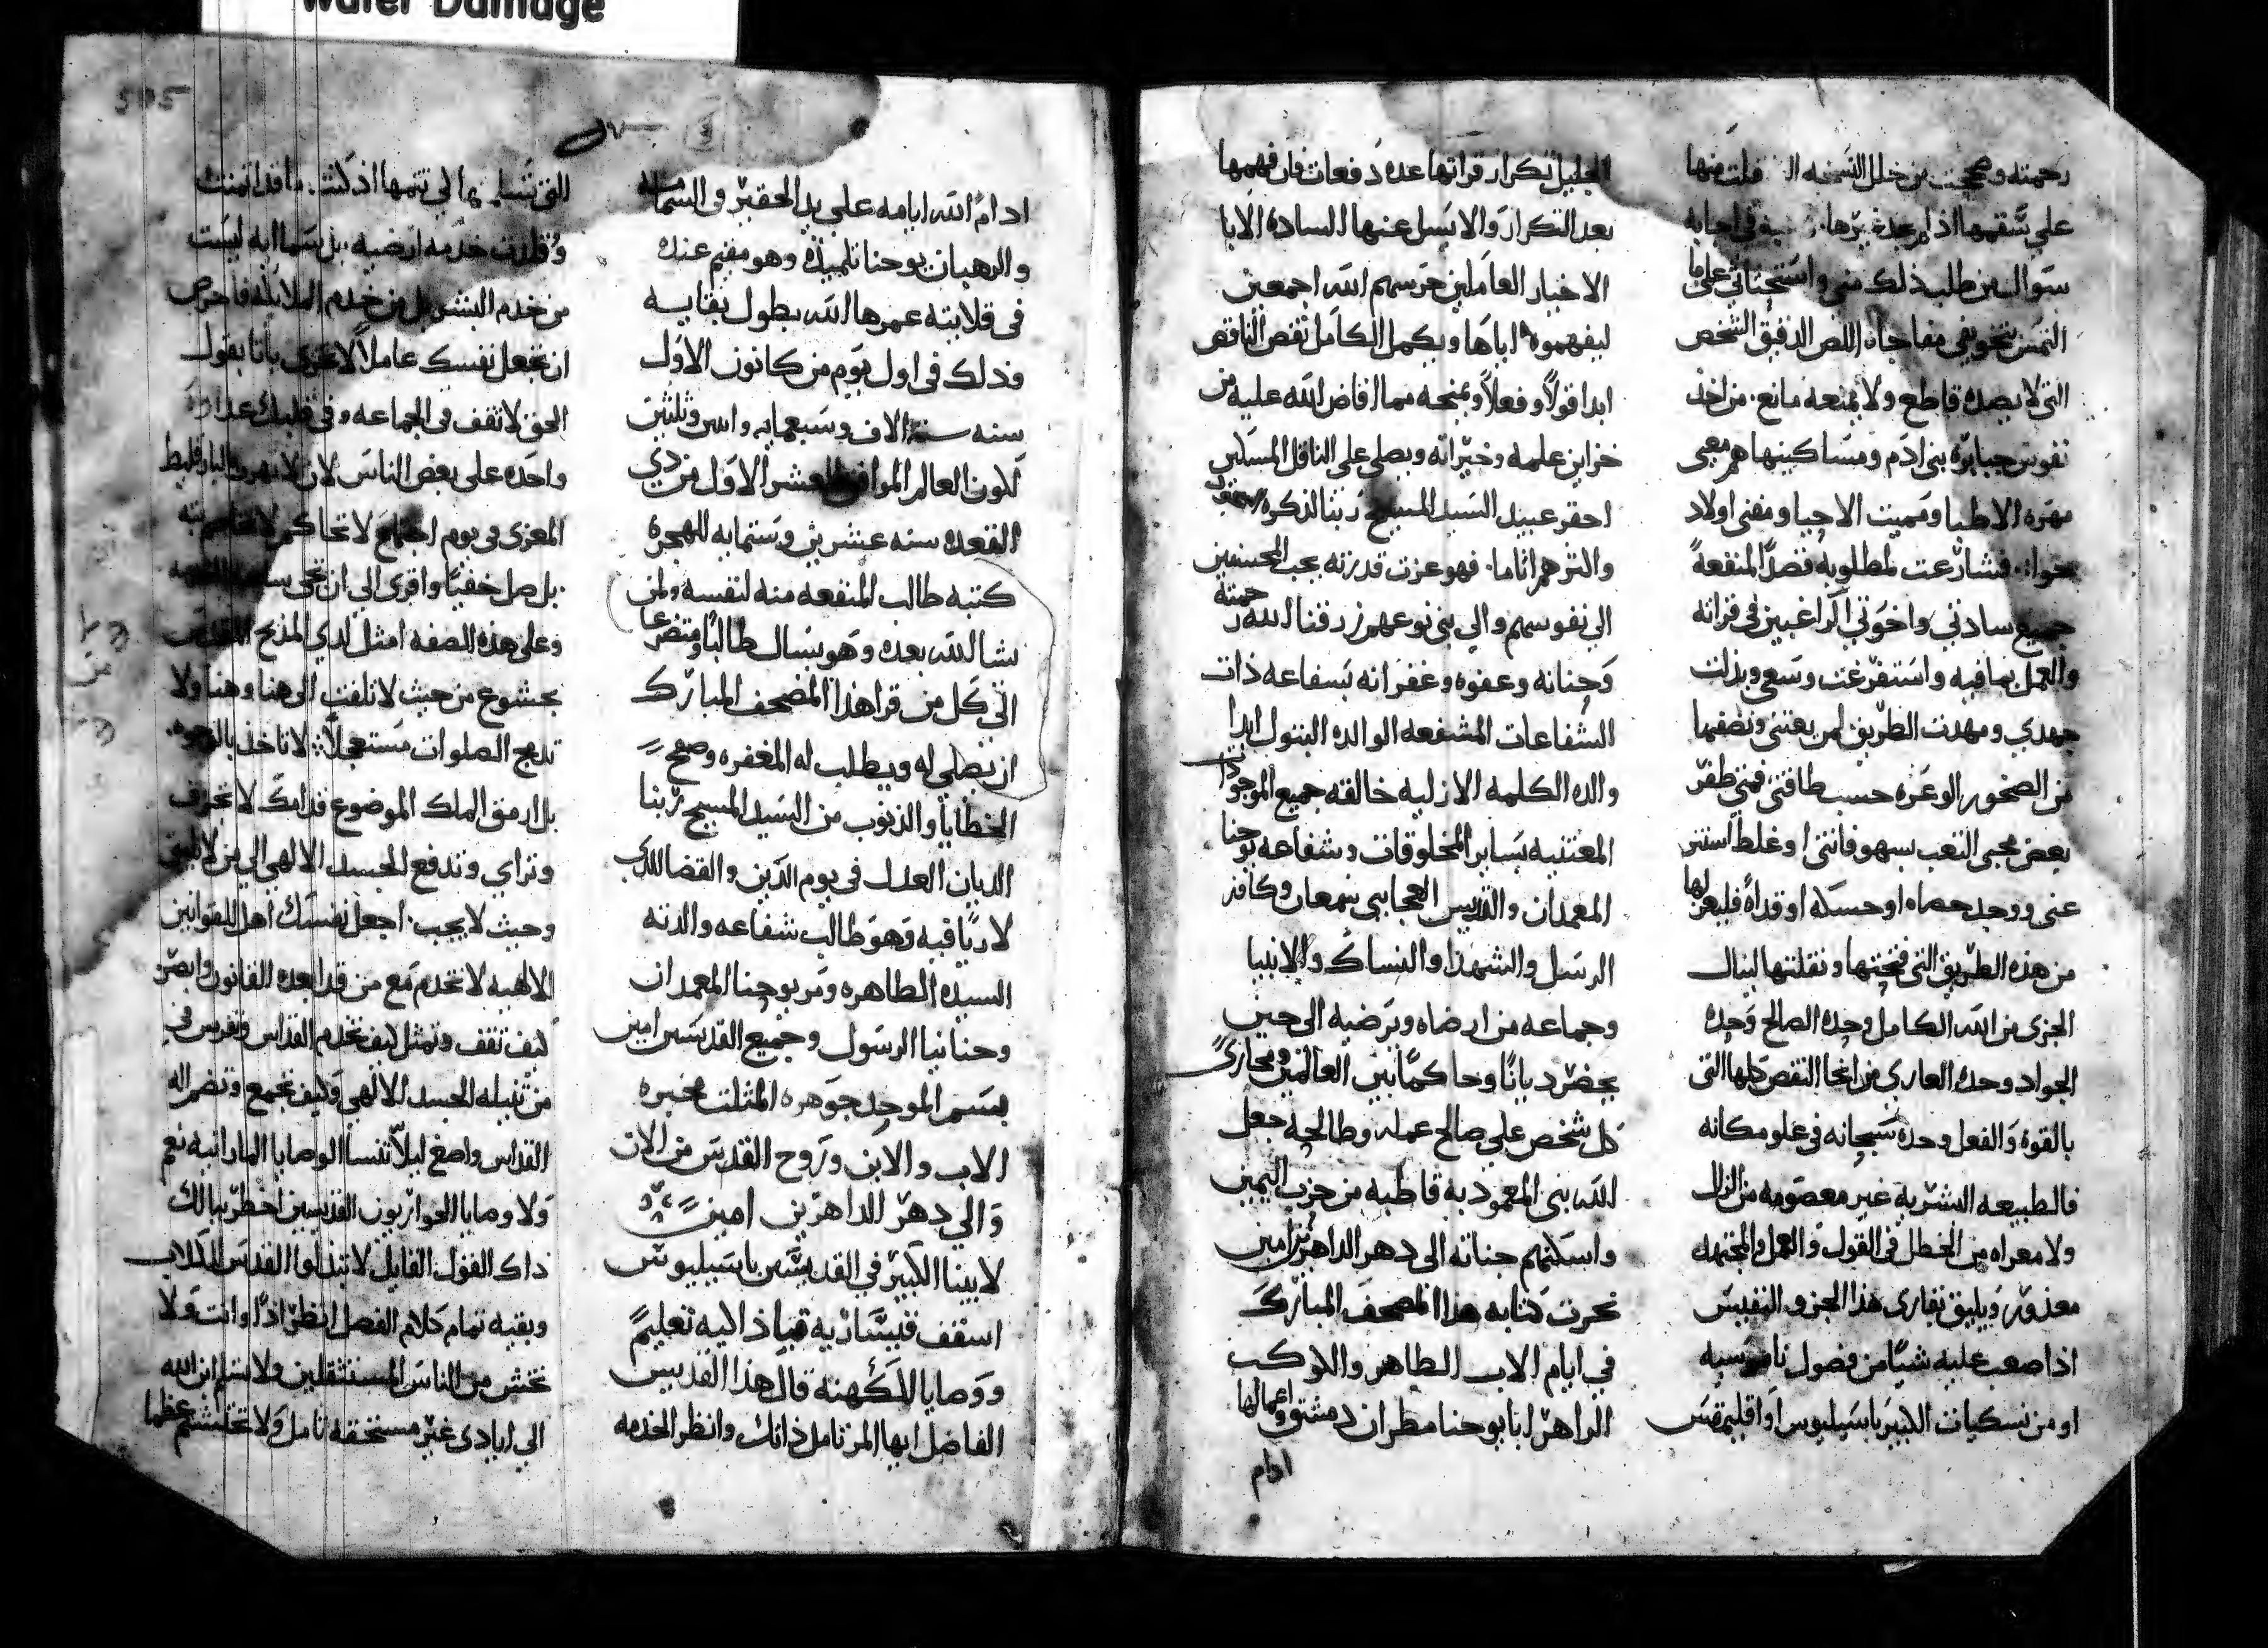 Water Damage
رحمته وصححت من خلل النسخه فلت منها
على سقمها اذ لم جد غيرها في اجابه
سوال من طلب ذلك مني واستحثاثي على ما
التمس تخوفي مفاجاه اللص الدقيق الشخص
التي لا يصده قاطع ولا يمنعه مانع من اخذ
نفوس جبابره بني ادم ومساكينها معي
مهره الاطبا ومميت الاحيا ومفني اولاد
حوا فشارعت لمطلوبه قصدًا لمنفعة
جميع سادتي واخوتي الراغبين في قراته
والعمل بما فيه واستفرغت وسعي وبذلت
جهدي ومهدت الطريق لمن يعتني ونضفها
من الصخور الوعره حسب طاقتي فمتي ظفر
بعض محبي التعب بسهو فاتني او غلط استتر
عني ووجد حصاه او حسكه او قداة فليعزلها
من هذه الطريق التي فتحتها ونقلتها لينال
الجزي من الله الكامل وحده الصالح وحده
الجواد وحده العاري من انحا النقص كلها التي
بالقوة والفعل وحده سبحانه في علو مكانه
فالطبيعه البشرية غير معصومه من الزلل
ولا معراه من الخطل في القول والعمل والمجتهد
معذور ويليق بقاري هذا الجزو النفيس
اذا صعب عليه شيًا من فصول ناموسيه
او من نسكيات الكبير باسيليوس او اقليمقس
الجليل تكرار قراتها عدة دفعات فان فهمها
بعد التكرار والا يسل عنها الساده الابا
الاخيار العاملين حرسهم الله اجمعين
ليفهموه اياها ويكمل الكامل نقص الناقص
ابدا قولًا وفعلًا ويمنحه مما افاض الله عليه من
خزاين علمه وخيراته ويصلي على الناقل المسكين
احقر عبيد السيد المسيح ربنا لذكره
والترحم اثاما فهو عزت قدرته يحب المحسنين
الي نفوسهم والي بني نوعهم رزقنا الله رحمته
وحنانه وعفوه وغفرانه بشفاعه ذات
الشفاعات المشفعه الوالده البتول ابدا
والده الكلمه الازليه خالقه جميع الموجودات
المعتنيه بساير المخلوقات وشفاعه يوحنا
المعمدان والقديس العجايبي سمعان وكافة
الرسل والشهدا والنساك والانبيا
وجماعه من ارضاه ويرضيه الى حين
يحضر ديانًا وحاكمًا بين العالمين ومجازي
كل شخص على صالح عمله وطالحه جعل
الله بني المعموديه قاطبه من حزب اليمين
واسكنهم جناته الى دهر الداهرين امين
نجزت كتابه هذا المصحف المبارك
في ايام الاب الطاهر والكوكب
الزاهر ابا يوحنا مطران دمشق واعمالها
ادام
505
ادام الله ايامه على يد الحقير في الشمامسه
والرهبان يوحنا تلميذه وهو مقيم عنده
في قلايته عمرها الله بطول بقايه
وذلك في اول يوم من كانون الاول
سنه ستة الاف وسبعمايه واثنين وثلثين
لكون العالم الموافق للعشر الاول من ذي
القعده سنه عشرين وستمايه للهجرة
كتبه طالب المنفعه منه لنفسه ولمن
يشا الله بعده وهو يسال طالبًا ومتضرعا
الي كل من قرا هذا المصحف المبارك
ان يصلي له ويطلب له المغفره وصفح
الخطايا والذنوب من السيد المسيح ربنا
الديان العدل في يوم الدين والقضا للذي
لا ريا فيه وهو طالب شفاعه والدته
السيده الطاهره ومر يوحنا المعمدان
وحنانيا الرسول وجميع القديسين امين
بسم الموحد جوهره المثلث مخبره
الاب والابن وروح القدس من الان
والى دهر الداهرين امين
لابينا الكبير في القديسين باسيليوس
اسقف قيساريه قباذاليه تعليم
ووصايا للكهنه قال هذا القديس
الفاضل ايها المر تامل ذاتك وانظر الخدمه
التي تسلمتها لي تتمها اذ كنت ما قد اتمنت
وقلدت خدمه ارضيه بل سماايه ليست
من خدم البشر بل من خدم الملايكه فاحرص
ان تجعل نفسك عاملًا لا تخزي بانا بقول
الحق لا تقف في الجماعه وفي قلبك عداوة
واحده على بعض الناس لان لا تهرب البارقليط
المعزي في يوم اجتماع لا تحاكم لا تخاصم به
بل صل خفيًا واقري الي ان تجي ساعه
وعلى هذه الصفه امثل لدي المذبح المقدس
بخشوع من حيث لا تلفت الى هنا وهنا ولا
تدمج الصلوات مستعجلًا لا تاخذ بالوجوه
بل ارمق الملك الموضوع قدامك لا تجزف
وتراي وتدفع الجسد الالهي الي من لا ينبغي
وحيث لا يجب اجعل نفسك اهل للقوانين
الالهيه لا تخدم مع من قد ابعده القانون وابصر
كيف تقف وتمثل كيف تخدم القداس وتحرس في
من تنيله الجسد الالهي وكيف تجمع وتضم اله
القداس واصغ ليلا تنسا الوصايا الماراتبه نعم
ولا وصايا الحواريون القديسين اخطر ببالك
ذاك القول القايل لا تبذلوا القدس للكلاب
وبقيه تمام كلام الفصل انظر اذًا وانت ولا
تخش من الناس المستثقلين ولا تسلم ابن الله
الي ايادي غير مستحقه تامل ولا تحتشم عظما